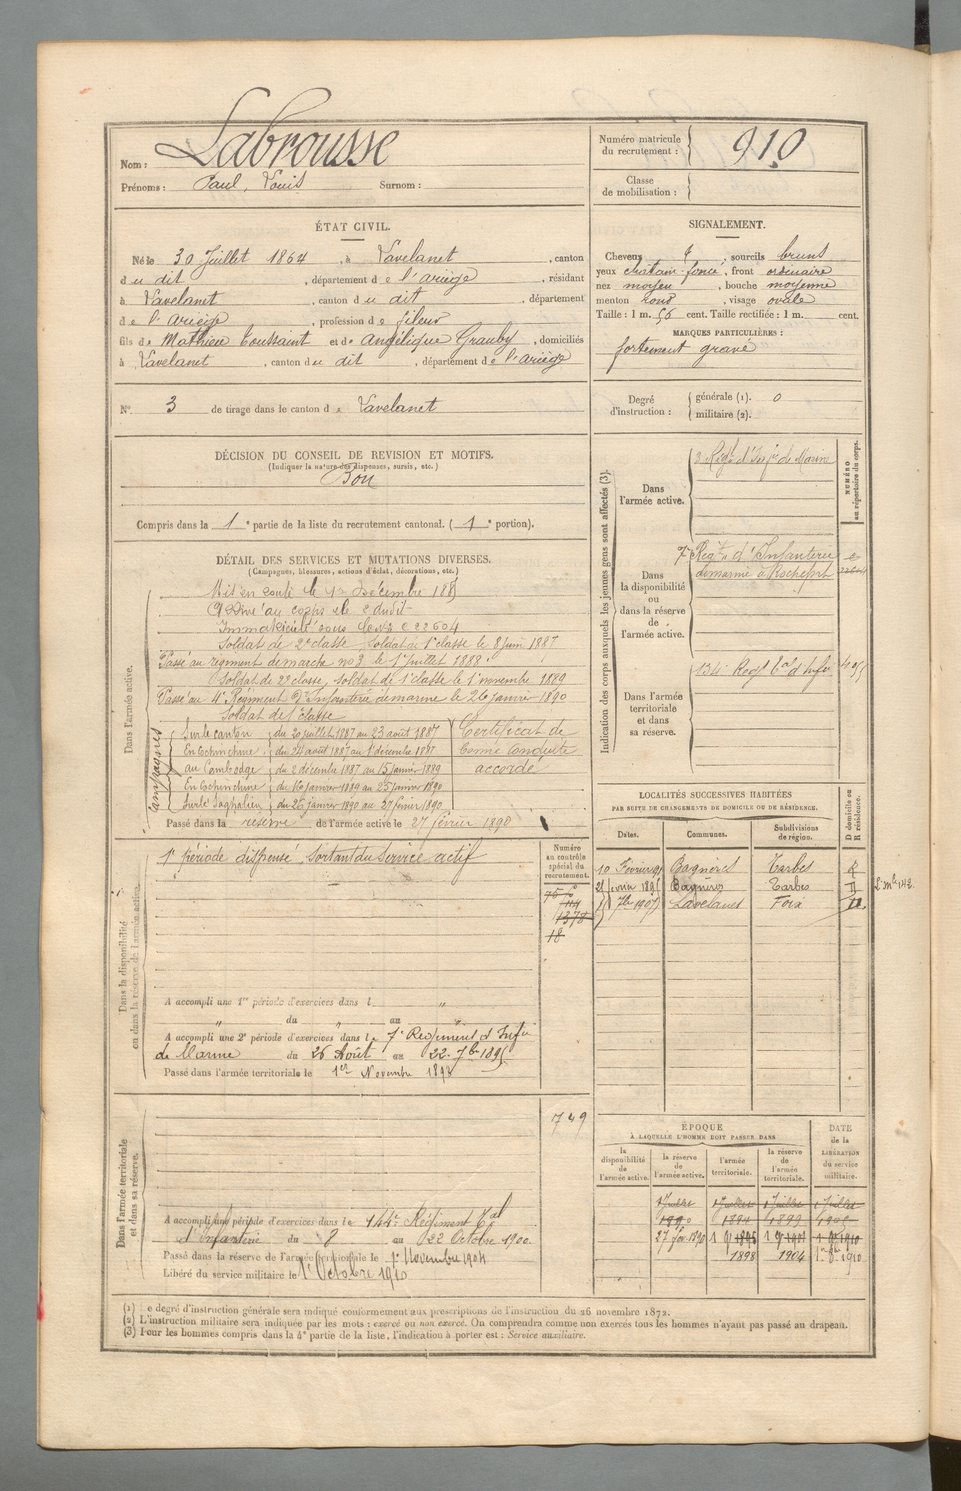 Nom : Labrousse
Prénoms : Paul, Louis Surnom :
Numéro matricule du recrutement : 910
Classe de mobilisation :
ÉTAT CIVIL.
Né le 30 Juillet 1864, à Lavelanet, canton
du dit, département de l'Ariège, résidant
à Lavelanet, canton du dit, département
de l'Ariège, profession de fileur
fils de Mathieu Toussaint et de Angélique Grauby, domiciliés
à Lavelanet, canton du dit, département de l'Ariège
N° 3 de tirage dans le canton de Lavelanet
DÉCISION DU CONSEIL DE REVISION ET MOTIFS.
(Indiquer la nature des dispenses, sursis, etc.)
Bon
Compris dans la 1e partie de la liste du recrutement cantonal. (1e portion).
SIGNALEMENT.
Cheveux, sourcils bruns
yeux châtain-foncé, front ordinaire
nez moyen, bouche moyenne
menton rond, visage ovale
Taille : 1 m. 56 cent. Taille rectifiée : 1 m. cent.
MARQUES PARTICULIÈRES :
fortement gravé
Degré d'instruction : générale (1). 0
militaire (2).
DÉTAIL DES SERVICES ET MUTATIONS DIVERSES.
(Campagnes, blessures, actions d'éclat, décorations, etc.)
Dans l'armée active.
Mis en route le Décembre 188
Arrivé au corps le dudit
Immatriculé sous le N° 22604
Soldat de 2e classe Soldat de 1e classe le 8 juin 1887
Passé au régiment de marche no 3 le 1er juillet 1888
Soldat de 2e classe, soldat de 1e classe le 1 novembre 1889
Passé au 4e Régiment d'Infanterie de marine le 26 janvier 1890
Soldat de 1e classe
Campagnes
Sur le canton du 20 juillet 1887 au 23 août 1887
En Cochinchine du 24 août 1887 au 1er décembre 1887
au Cambodge du 2 décembre 1887 au 15 janvier 1889
En Cochinchine du 16 janvier 1889 au 25 janvier 1890
Sur le Saghalien du 26 janvier 1890 au 27 février 1890
Certificat de
bonne conduite
accordé
Passé dans la réserve de l'armée active le 27 février 1890
Indication des corps auxquels les jeunes gens sont affectés (3).
NUMÉRO au répertoire du corps.
Dans l'armée active.
Régt d'Infie de Marine
Dans la disponibilité ou dans la réserve de l'armée active.
7e Régt d'Infanterie
de marine à Rochefort
Dans l'armée territoriale et dans sa réserve.
134e Régt tal d'Infie
LOCALITÉS SUCCESSIVES HABITÉES
PAR SUITE DE CHANGEMENTS DE DOMICILE OU DE RÉSIDENCE.
Dates. Communes. Subdivisions de région. D domicile ou R résidence.
10 Février Bagnères Tarbes R
février 1895 Bagnères Tarbes
7bre 1907 Lavelanet Foix
Dans la disponibilité ou dans la réserve de l'armée active.
Numéro au contrôle spécial du recrutement.
1e période dispensé Sortant du Service actif
1378
18
A accompli une 1re période d'exercices dans l "
" du " au "
A accompli une 2e période d'exercices dans le 7e Régiment d'Infie
de Marine du 26 Août au 22 7bre 1895
Passé dans l'armée territoriale le 1er Novembre 189
Dans l'armée territoriale et dans sa réserve.
749
A accompli une période d'exercices dans le 144e Régiment Tal
d'Infanterie du 8 au 22 Octobre 1900
Passé dans la réserve de l'armée territoriale le 1er Novembre 1904
Libéré du service militaire le 1er Octobre 1910
ÉPOQUE
À LAQUELLE L'HOMME DOIT PASSER DANS
DATE de la LIBÉRATION du service militaire.
la disponibilité de l'armée active. la réserve de l'armée active. l'armée territoriale. la réserve de l'armée territoriale.
1 Juillet 1 Juillet 1 Juillet 1 Juillet
1890 1894 1899
27 fév 1890
1898 1904 1910
(1) Le degré d'instruction générale sera indiqué conformément aux prescriptions de l'instruction du 26 novembre 1872.
(2) L'instruction militaire sera indiquée par les mots : exercé ou non exercé. On comprendra comme non exercés tous les hommes n'ayant pas passé au drapeau.
(3) Pour les hommes compris dans la 4e partie de la liste, l'indication à porter est : Service auxiliaire.